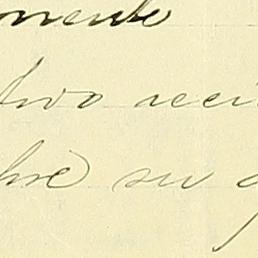 nente
tivo reci
bre su